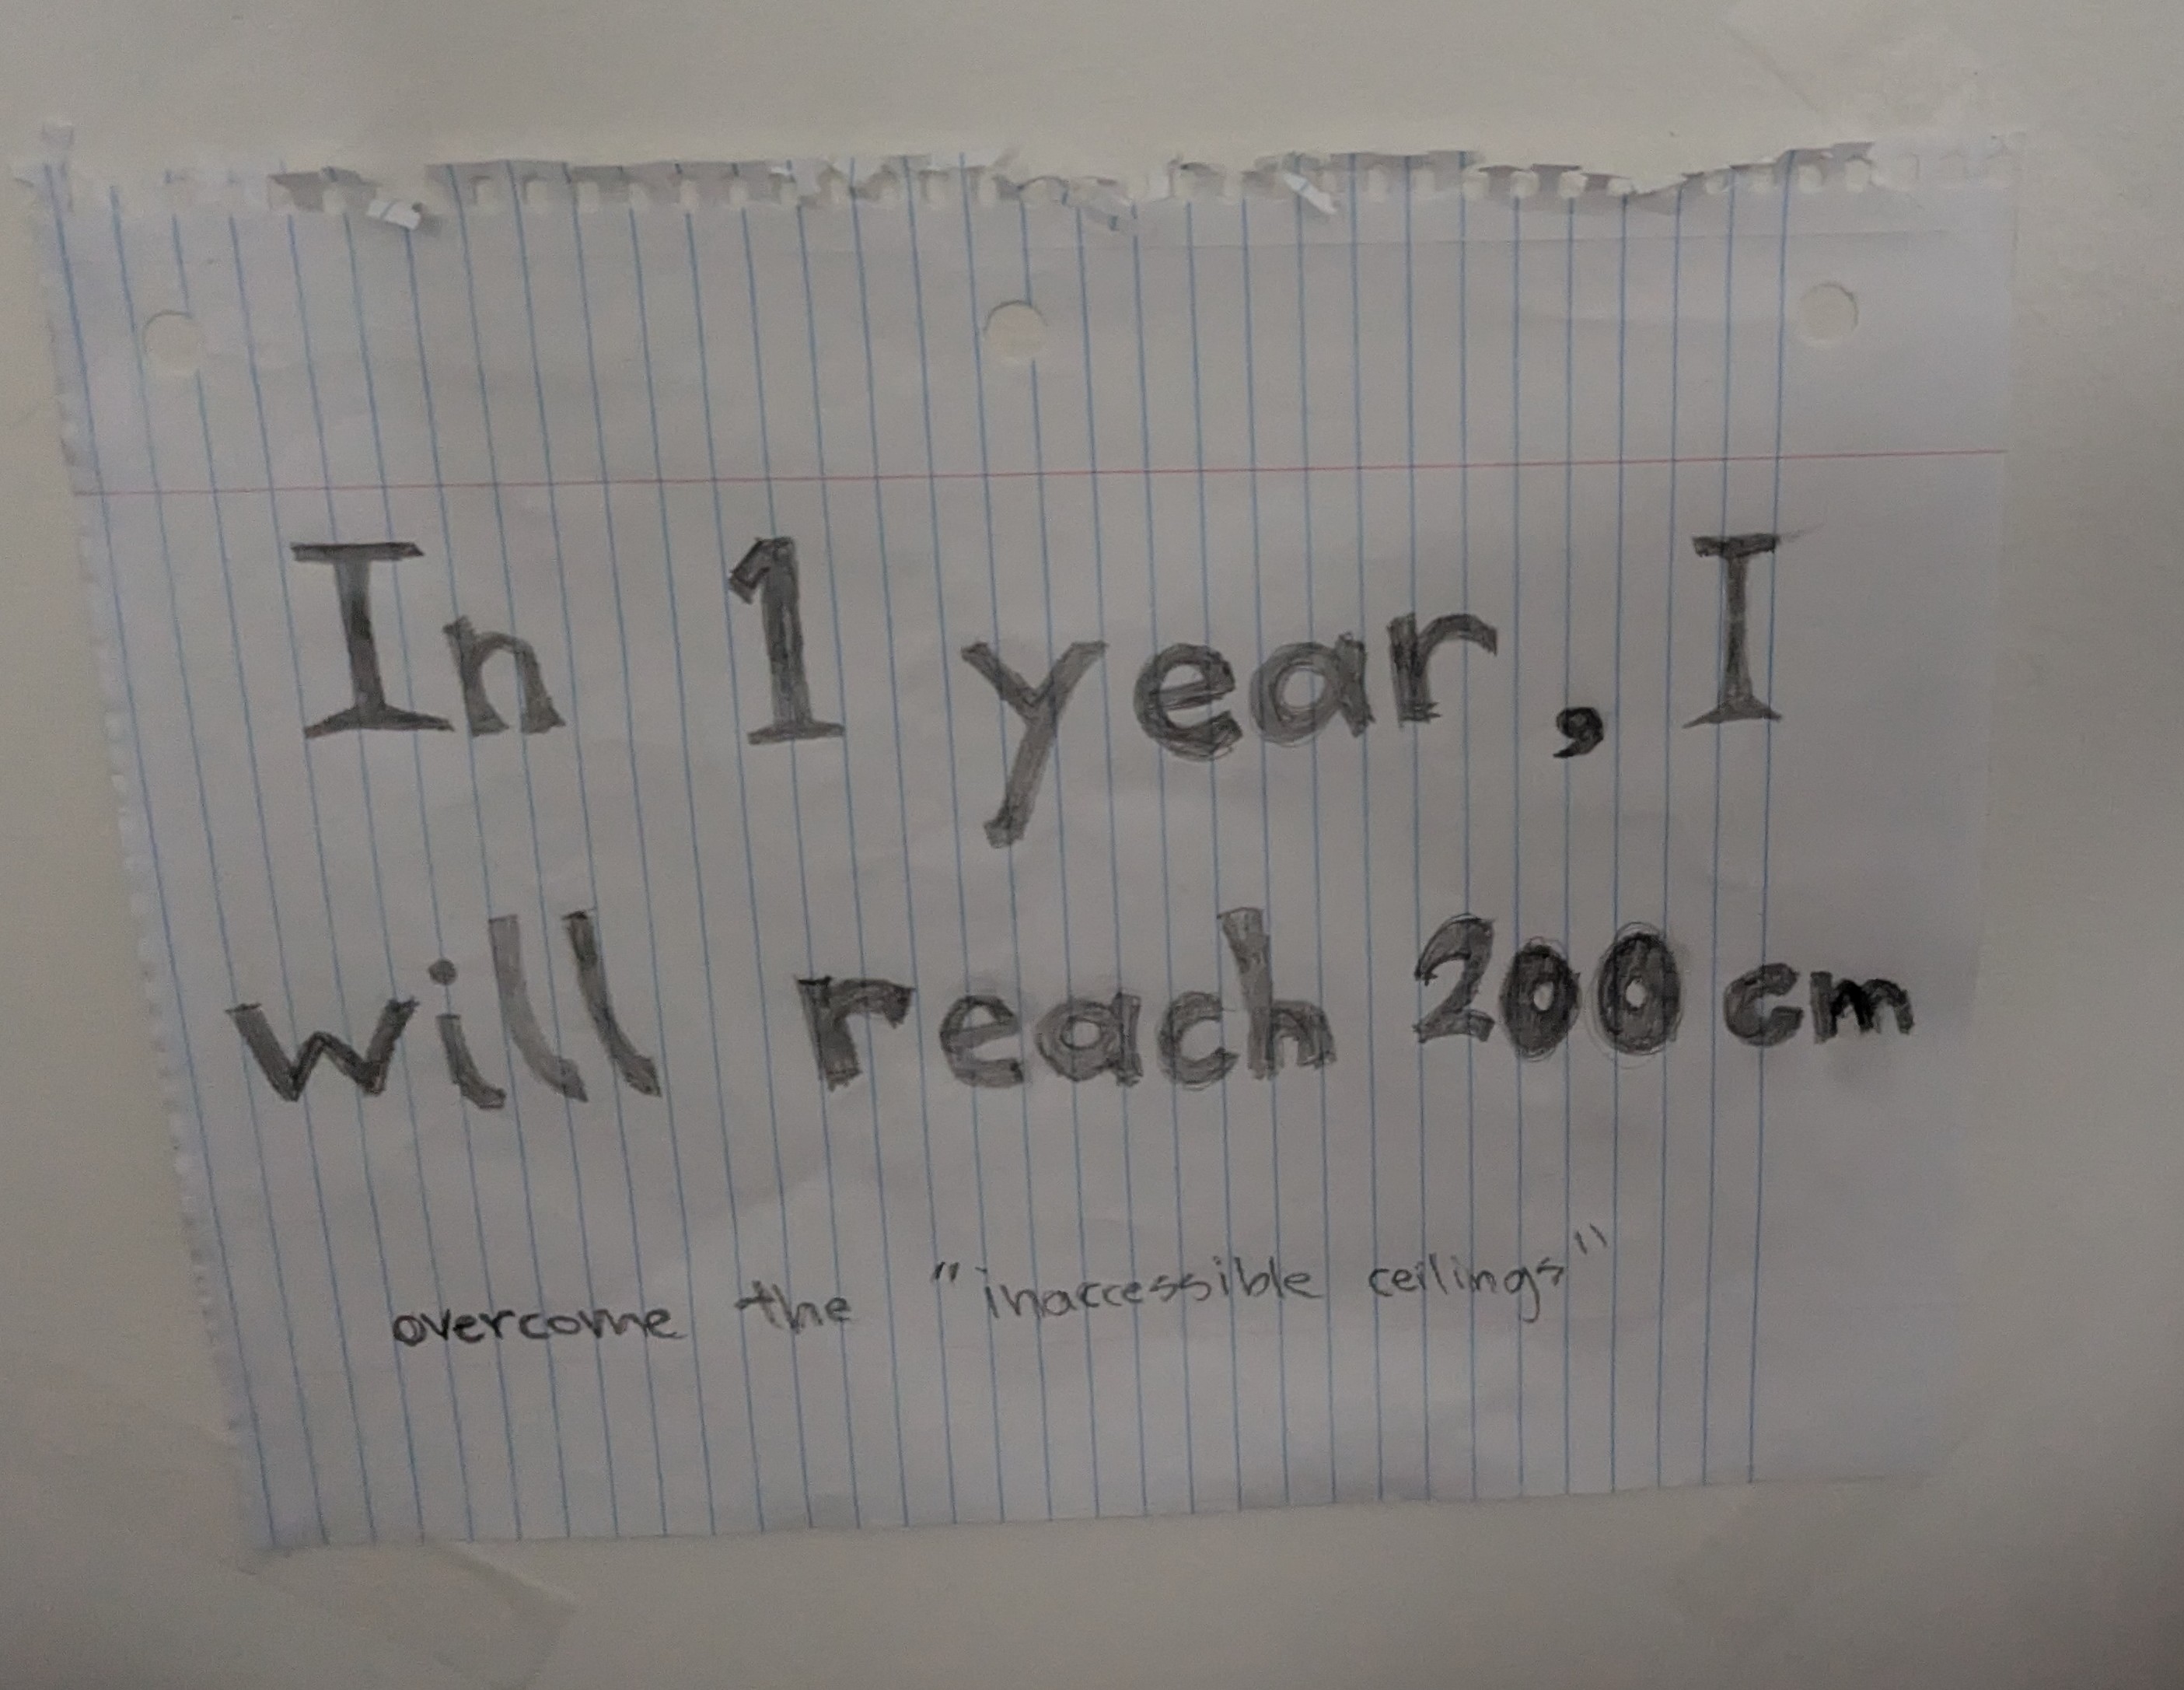 In 1 year, I
will reach 200 cm
overcome the "inaccessible ceilings"